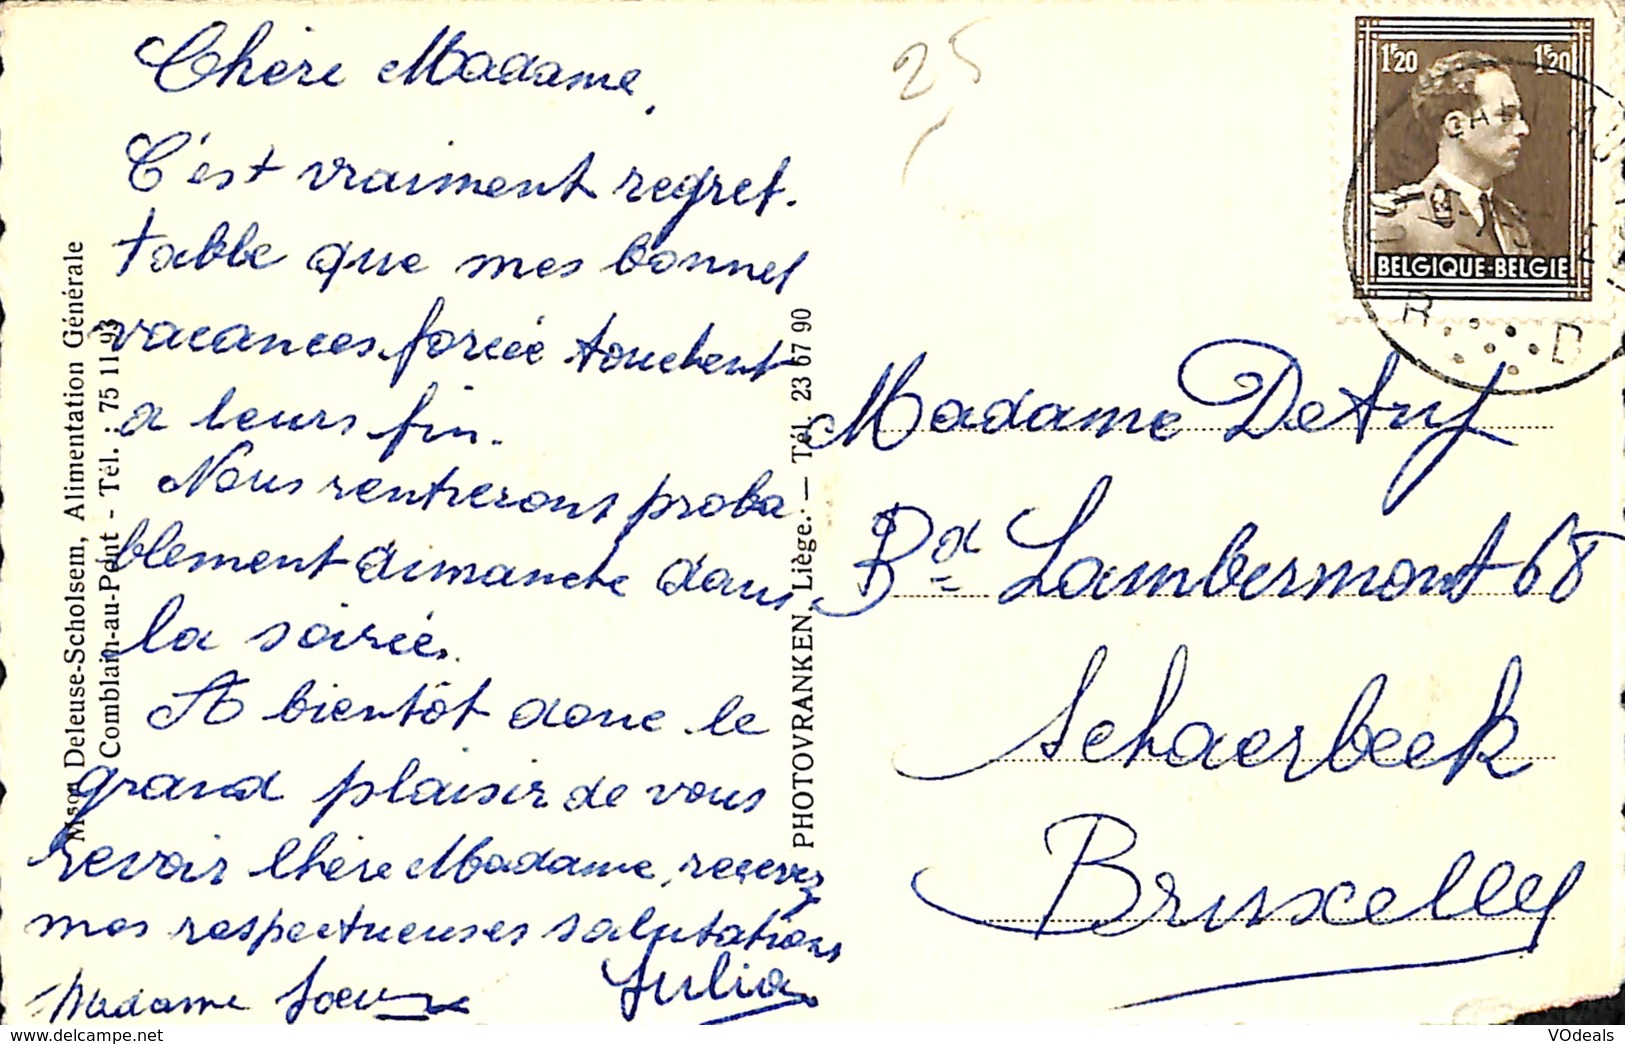 Chère Madame,
C'est vraiment regret-
table que mes bonnes
vacances forcée touchent
a leurs fin.
Nous rentrerons proba
blement dimanche dans
la soirée.
A bientôt donc le
grand plaisir de vous
revoir Chère Madame, recevez
mes respectueuses salutations
Madame Soeur
Julia
Mson Deleuse-Scholsem, Alimentation Générale
Comblain-au-Pont - Tél. : 75 11 93
PHOTOVRANKEN, Liège. — Tél. 23 67 90
25
1F20 1F20
BELGIQUE-BELGIE
R D
Madame
Bd Lambermont 68
Schaerbeek
Bruxelles
VOdeals
delcampe.net